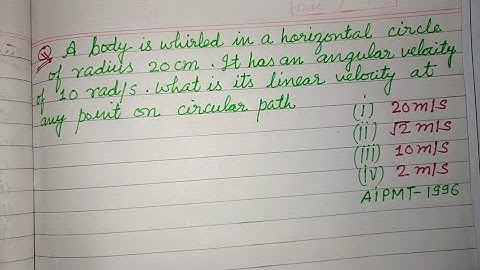 Date:
Q A body is whirled in a horizontal circle
of radius 20 cm. It has an angular velocity
of 10 rad/s. what is its linear velocity at
any point on circular path
(i) 20 m/s
(ii) √2 m/s
(iii) 10 m/s
(iv) 2 m/s
AiPMT-1996